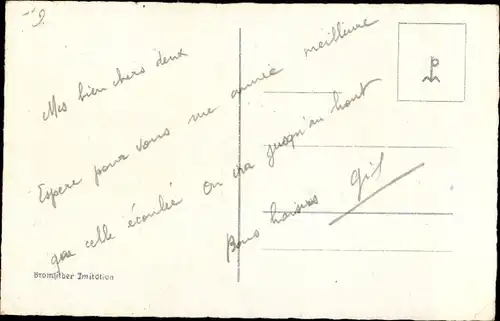 Mes bien chers deux
Espere pour vous une année meilleure
que celle écoulée On ira jusqu'au bout
Bons baisers Gil
Bromsilber Imitation